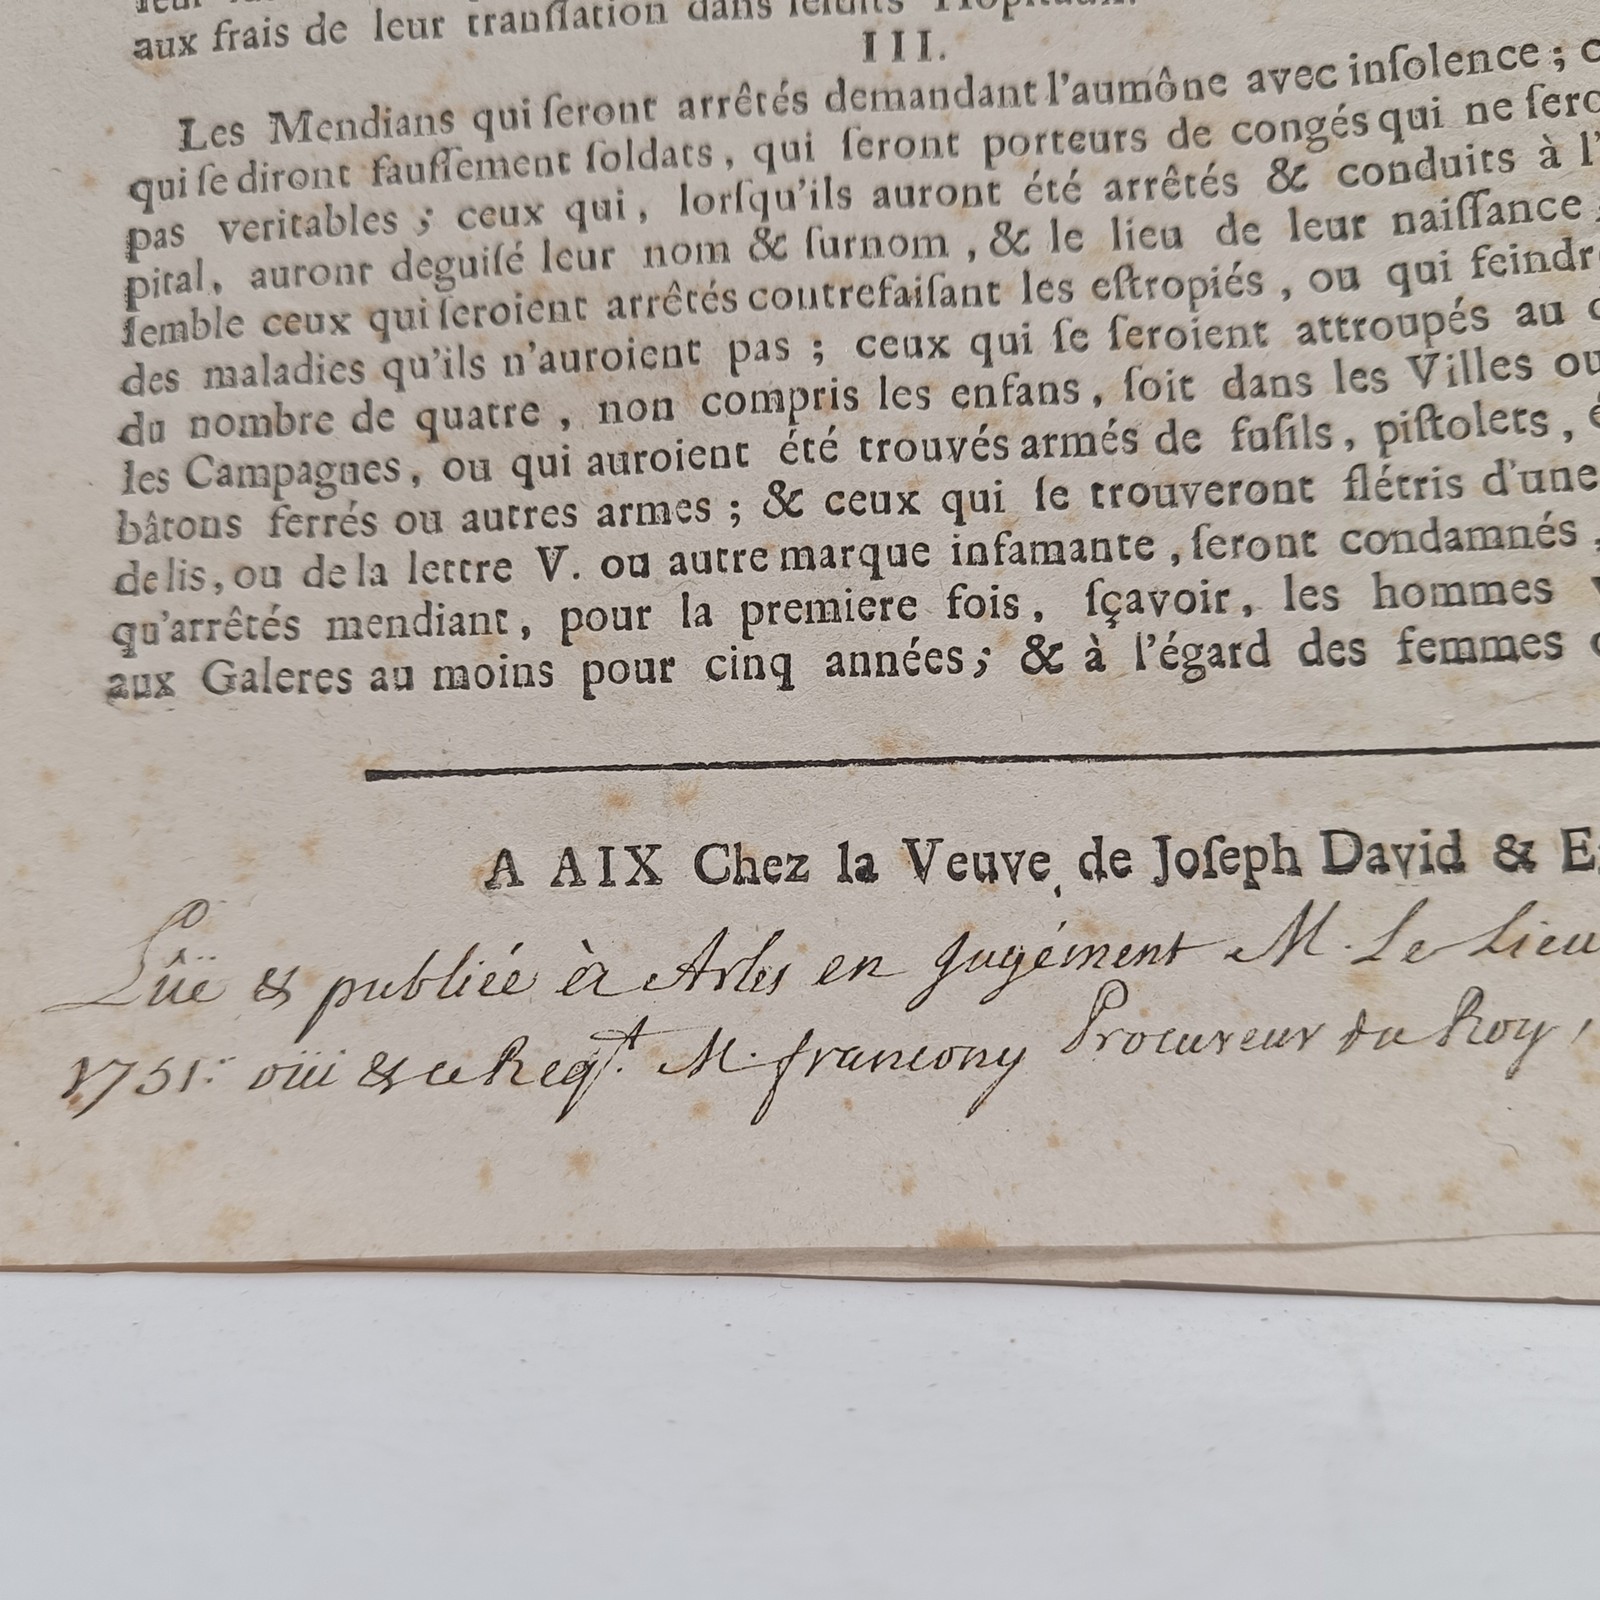 aux frais de leur tranſlation dans leſdits Hôpitaux.
III.
Les Mendians qui ſeront arrêtés demandant l'aumône avec inſolence ; c
qui ſe diront fauſſement ſoldats, qui ſeront porteurs de congés qui ne ſero
pas veritables ; ceux qui, lorſqu'ils auront été arrêtés & conduits à l'
pital, auront deguiſé leur nom & ſurnom, & le lieu de leur naiſſance ;
ſemble ceux qui ſeroient arrêtés contrefaiſant les eſtropiés, ou qui feindr
des maladies qu'ils n'auroient pas ; ceux qui ſe ſeroient attroupés au
du nombre de quatre, non compris les enfans, ſoit dans les Villes ou
les Campagnes, ou qui auroient été trouvés armés de fuſils, piſtolets, é
bâtons ferrés ou autres armes ; & ceux qui ſe trouveront flétris d'une
de lis, ou de la lettre V. ou autre marque infamante, ſeront condamnés,
qu'arrêtés mendiant, pour la premiere fois, ſçavoir, les hommes v
aux Galeres au moins pour cinq années ; & à l'égard des femmes
A AIX Chez la Veuve de Joſeph David & E
Lüe & publiée à Arles en Jugément M. Le Lieu
1751. oüi & ce Reqt. M. francony Procureur du Roy,